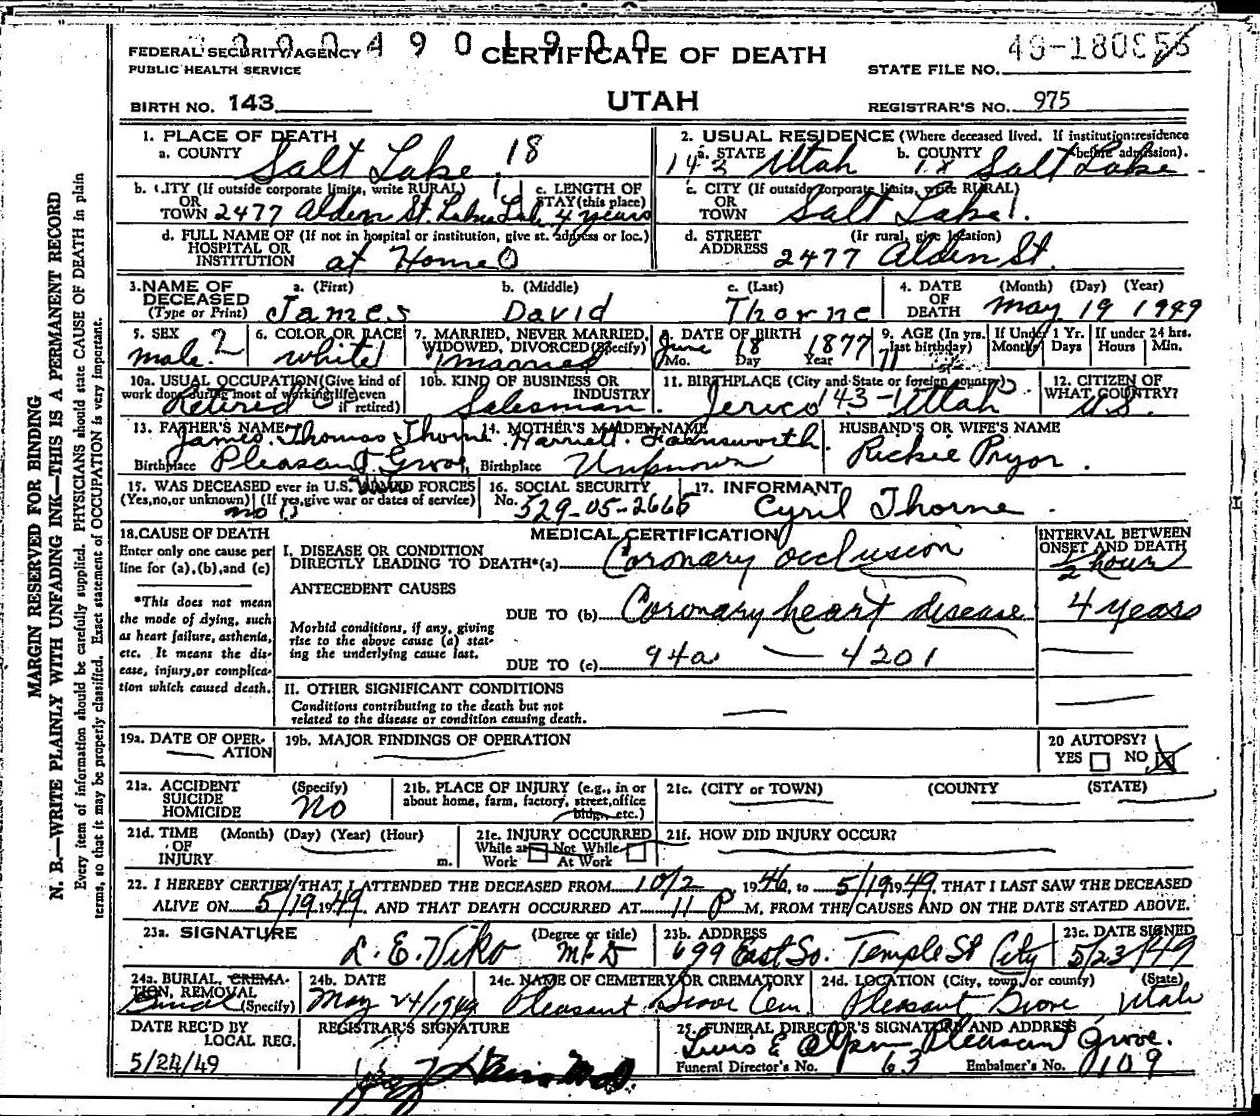 FEDERAL SECURITY AGENCY
PUBLIC HEALTH SERVICE
3 0 0 4 9 0 1 9 0 0
CERTIFICATE OF DEATH
STATE FILE NO. 49-180
BIRTH NO. 143
UTAH
REGISTRAR'S NO. 975
1. PLACE OF DEATH
a. COUNTY Salt Lake 18
2. USUAL RESIDENCE (Where deceased lived. If institution: residence before admission).
a. STATE 143 Utah b. COUNTY 18 Salt Lake
b. CITY (If outside corporate limits, write RURAL) OR TOWN 2477 Alden St.
c. LENGTH OF STAY (this place) 4 years
c. CITY (If outside corporate limits, write RURAL) OR TOWN Salt Lake 1.
d. FULL NAME OF (If not in hospital or institution, give st. address or loc.) HOSPITAL OR INSTITUTION at Home 0
d. STREET ADDRESS (If rural, give location) 2477 Alden St.
3. NAME OF DECEASED (Type or Print)
a. (First) James
b. (Middle) David
c. (Last) Thorne
4. DATE OF DEATH (Month) (Day) (Year) May 19 1949
5. SEX male
6. COLOR OR RACE white
7. MARRIED, NEVER MARRIED, WIDOWED, DIVORCED (Specify) married
8. DATE OF BIRTH June 18 1877
Mo. Day Year
9. AGE (In yrs. last birthday) 71
If Under 1 Yr. Months Days
If under 24 hrs. Hours Min.
10a. USUAL OCCUPATION (Give kind of work done during most of working life, even if retired) Retired
10b. KIND OF BUSINESS OR INDUSTRY Salesman.
11. BIRTHPLACE (City and State or foreign country) Jerico 143-1 Utah
12. CITIZEN OF WHAT COUNTRY? U.S.
13. FATHER'S NAME James Thomas Thorne
Birthplace Pleasant Grove
14. MOTHER'S MAIDEN NAME Harriett Farnsworth.
Birthplace Unknown
HUSBAND'S OR WIFE'S NAME
Rickie Pryor.
15. WAS DECEASED ever in U.S. ARMED FORCES (Yes, no, or unknown) (If yes, give war or dates of service) no
16. SOCIAL SECURITY No. 529-05-2665
17. INFORMANT
Cyril Thorne.
18. CAUSE OF DEATH
Enter only one cause per line for (a), (b), and (c)
*This does not mean the mode of dying, such as heart failure, asthenia, etc. It means the disease, injury, or complication which caused death.
MEDICAL CERTIFICATION
I. DISEASE OR CONDITION DIRECTLY LEADING TO DEATH*(a) Coronary occlusion
INTERVAL BETWEEN ONSET AND DEATH
1/2 hour
ANTECEDENT CAUSES
Morbid conditions, if any, giving rise to the above cause (a) stating the underlying cause last.
DUE TO (b) Coronary heart disease 4 years
DUE TO (c) 94a — 4201
II. OTHER SIGNIFICANT CONDITIONS
Conditions contributing to the death but not related to the disease or condition causing death.
19a. DATE OF OPERATION
19b. MAJOR FINDINGS OF OPERATION
20 AUTOPSY?
YES NO X
21a. ACCIDENT SUICIDE HOMICIDE (Specify) No
21b. PLACE OF INJURY (e.g., in or about home, farm, factory, street, office bldg., etc.)
21c. (CITY or TOWN) (COUNTY (STATE)
21d. TIME OF INJURY (Month) (Day) (Year) (Hour) m.
21e. INJURY OCCURRED
While at Work Not While At Work
21f. HOW DID INJURY OCCUR?
22. I HEREBY CERTIFY THAT I ATTENDED THE DECEASED FROM 10/2, 1946, to 5/19 1949, THAT I LAST SAW THE DECEASED
ALIVE ON 5/19 1949, AND THAT DEATH OCCURRED AT 11 P M, FROM THE CAUSES AND ON THE DATE STATED ABOVE.
23a. SIGNATURE (Degree or title)
L. E. Viko M.D
23b. ADDRESS
699 East So. Temple St City
23c. DATE SIGNED
5/23/49
24a. BURIAL, CREMATION, REMOVAL (Specify) Burial
24b. DATE
May 24/1949
24c. NAME OF CEMETERY OR CREMATORY
Pleasant Grove Cem
24d. LOCATION (City, town, or county) (State)
Pleasant Grove Utah
DATE REC'D BY LOCAL REG.
5/24/49
REGISTRAR'S SIGNATURE
25. FUNERAL DIRECTOR'S SIGNATURE AND ADDRESS
Pleasant Grove.
Funeral Director's No. 63 Embalmer's No. 0109
MARGIN RESERVED FOR BINDING
N. B.—WRITE PLAINLY WITH UNFADING INK—THIS IS A PERMANENT RECORD
Every item of information should be carefully supplied. PHYSICIANS should state CAUSE OF DEATH in plain
terms, so that it may be properly classified. Exact statement of OCCUPATION is very important.